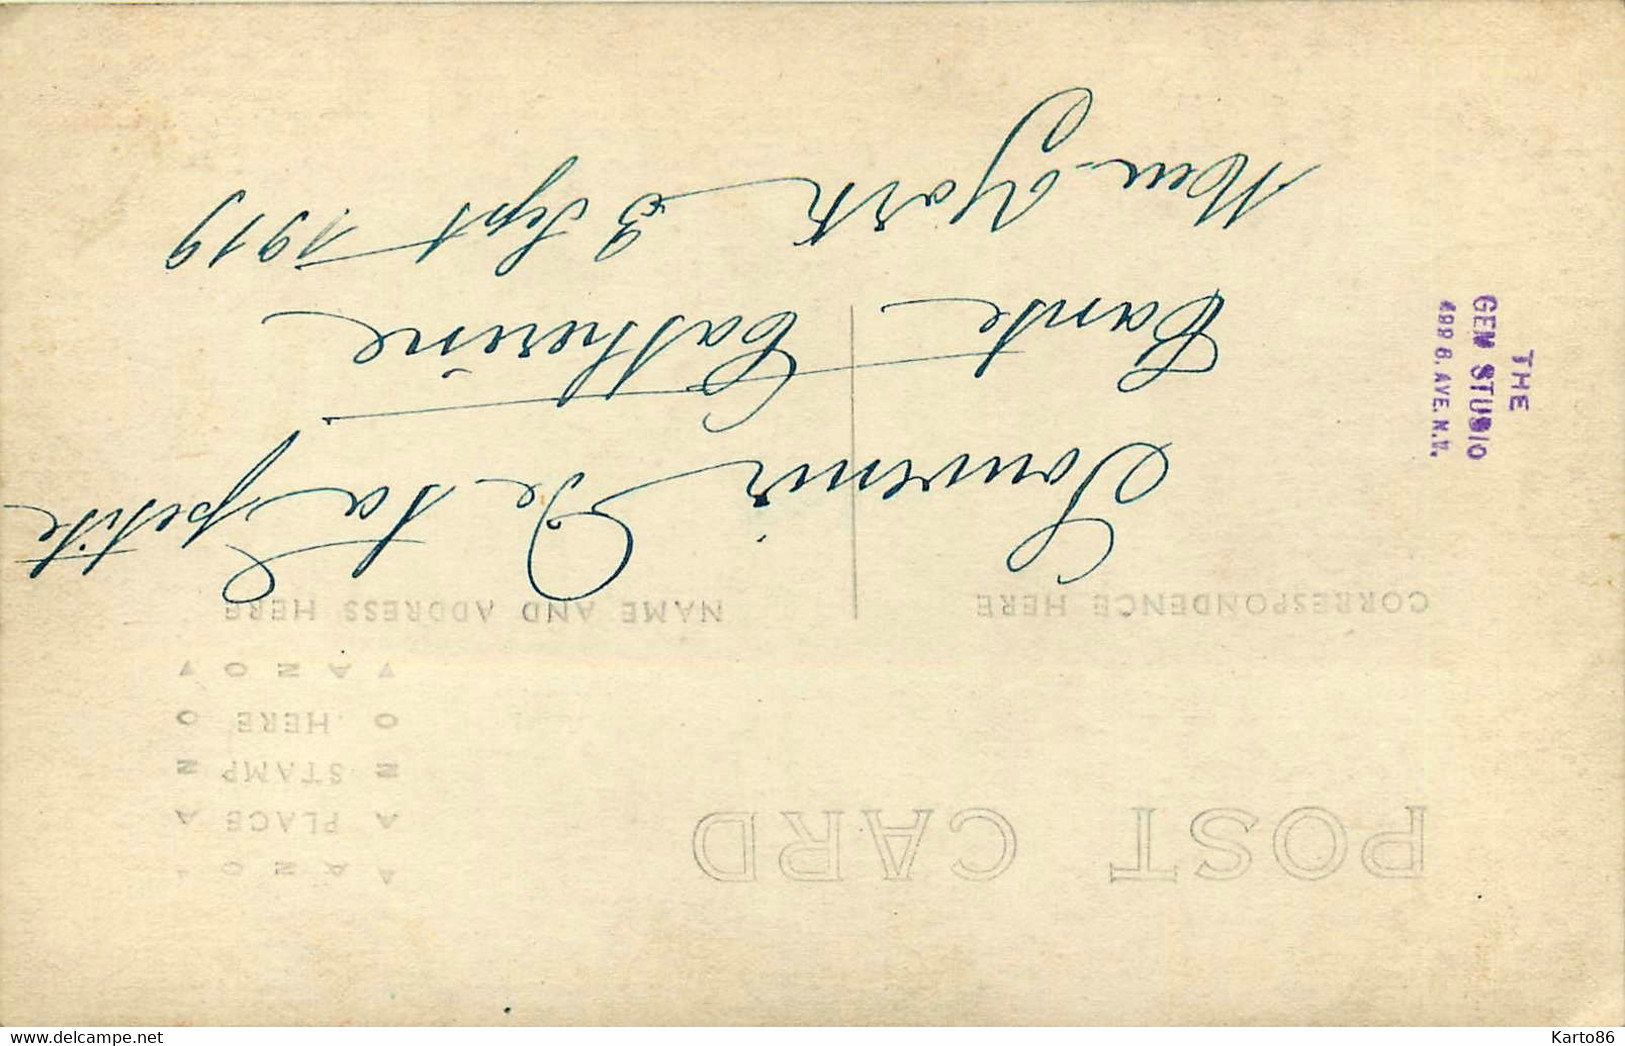 POST CARD
▲ A Z O ▲
A PLACE A
Z STAMP Z
O HERE O
▼ A Z O ▼
CORRESPONDENCE HERE
NAME AND ADDRESS HERE
Souvenir De ta petite
Tante Catherine
New-York 3 Sept 1919
THE
GEM STUDIO
499 6. AVE. N.Y.
www.delcampe.net
Karto86